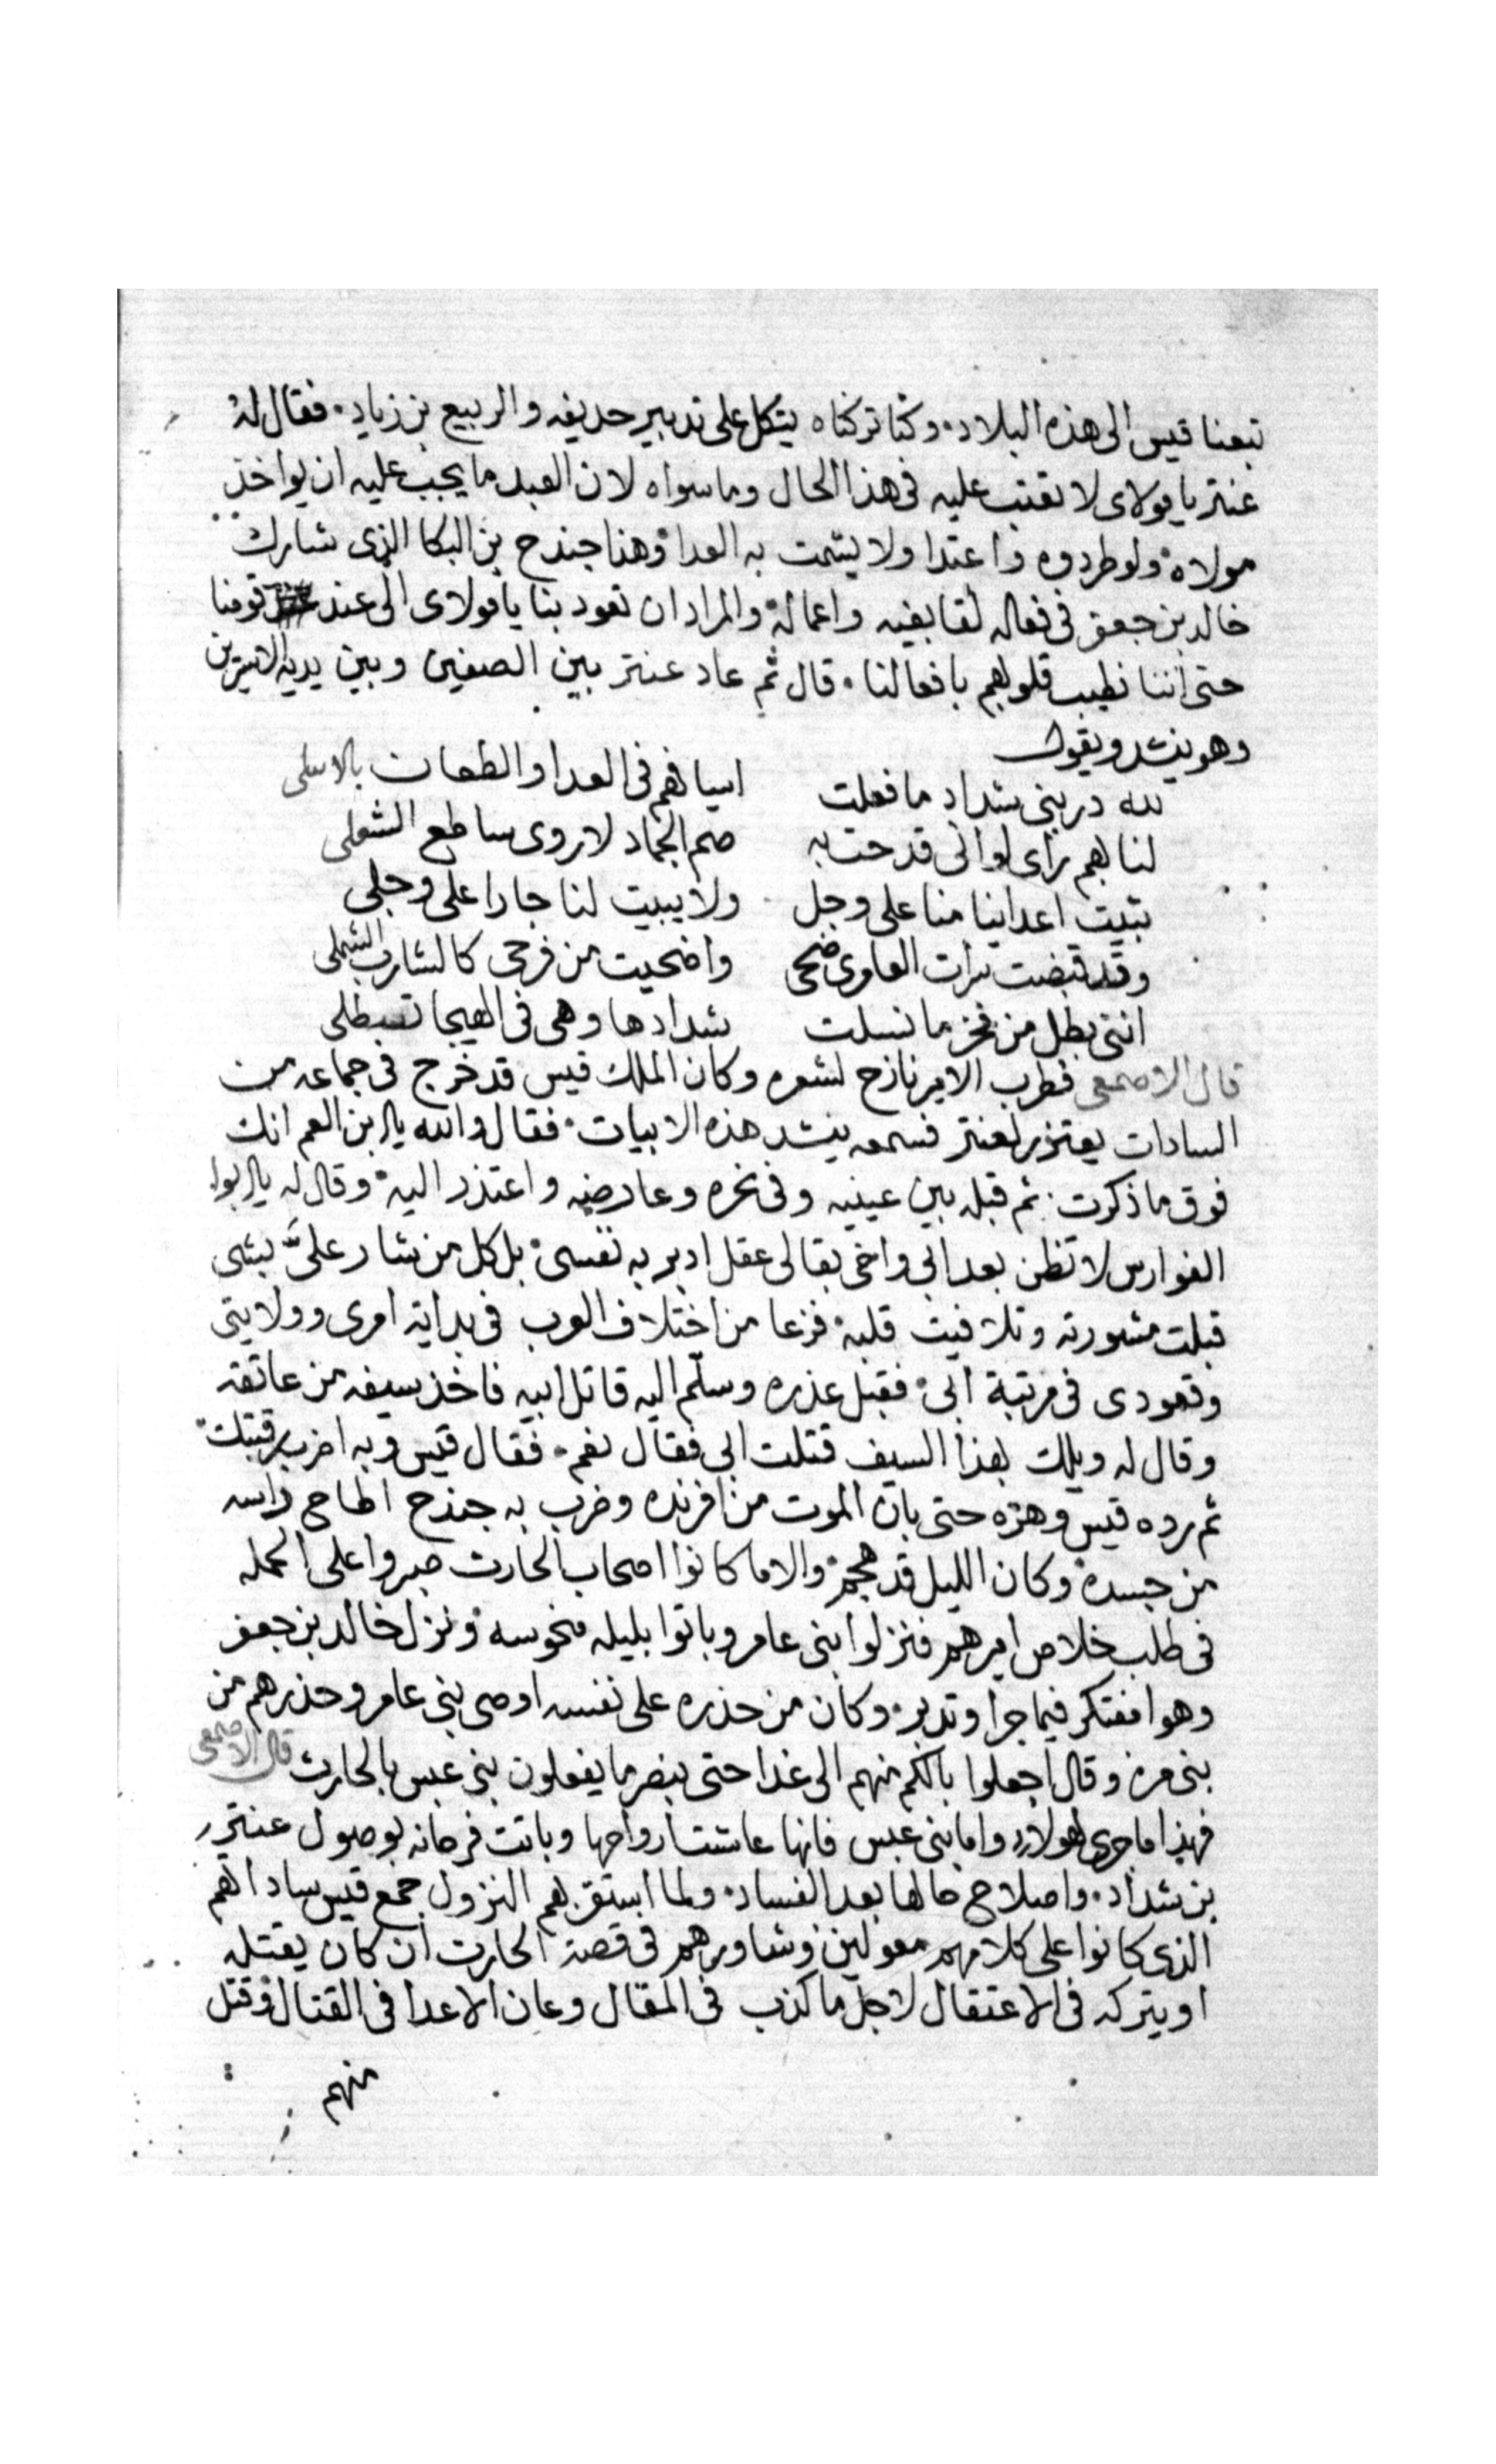 تبعنا قيس الى هذه البلاد. وكنا تركناه يتكل على تدبير حديفه والربيع بن زياد. فقال له
عنتر يا مولاى لا تعتب عليه فى هذا الحال وما سواه لان العبد ما يجب عليه ان يواخذ
مولاه ولو طردوه واعتدا ولا يشمت به العدا وهنا جندح بن البكا الذى شارك
خالد بن جعفر فى فعاله لقا بغيه واعماله والمراد ان تعود بنا يا مولاى الى عند قومنا
حتى اننا نطيب قلوبهم بافعالنا. قال ثم عاد عنتر بين الصفين وبين يديه
وهو ينشد ويقول
لله در بنى شداد ما فعلت اسيافهم فى العدا والطعان بالاسلى
لنا بهم راى لو انى قدحت به صم الجماد لاروى ساطع الشعلى
تبيت اعداينا منا على وجل ولا يبيت لنا جارا على وجلى
وقد قبضت ترات العاوى ضحى واضحيت من فرحى كالشارب الثملى
انتى بطل من فخر ما نسلت شدادها وهى فى الهيجا
قال الاصمعى فطرب الامير نازح لشعره وكان الملك قيس قد خرج فى جماعه من
السادات يعتزر لعنتر فسمعه ينشد هذه الابيات. فقال والله يا بن العم انك
فوق ما ذكرت. ثم قبله بين عينيه وفى نحره وعارضيه واعتذر اليه وقال له يا ابوا
الفوارس لا تظن بعد ابى واخى بقا لى عقل ادبر به نفسى بل كل من شار علىّ بشى
قبلت مشورته وتلافيت قلبه فزعا من اختلاف العرب فى بداية امرى وولايتى
وقعودى فى مرتبة ابى فقبل عذره وسلّم اليه قاتل ابيه فاخذ سيفه من عاتقه
وقال له ويلك بهذا السيف قتلت ابى فقال نعم. فقال قيس وبه اضرب رقبتك
ثم رده قيس وهزه حتى بان الموت من افرنده وضرب به جندح اطاح راسه
من جسده وكان الليل قد هجم والا ما كانوا اصحاب الحارث صبروا على الحمله
فى طلب خلاص اميرهم فنزلوا بنى عامر وباتوا بليله منحوسه ونزل خالد بن جعفر
وهوا مفتكر فيما جرا وتدبر. وكان من حذره على نفسه اوصى بنى عامر وحذرهم من
بنى مره وقال اجعلوا بالكم منهم الى غدا حتى نبصر ما يفعلون بنى عبس بالحارث قال الاصمعى
فهذا ما جرى لهولاى واما بنى عبس فانها عاشت ارواحها وباتت فرحانه بوصول عنتر
بن شداد. واصلاح حالها بعد الفساد. ولما استقر بهم النزول جمع قيس ساداتهم
الذى كانوا على كلامهم معولين وشاورهم فى قصة الحارث ان كان يقتله
او يتركه فى الاعتقال لاجل ما كذب فى المقال وعان الاعدا فى القتال وقتل
منهم